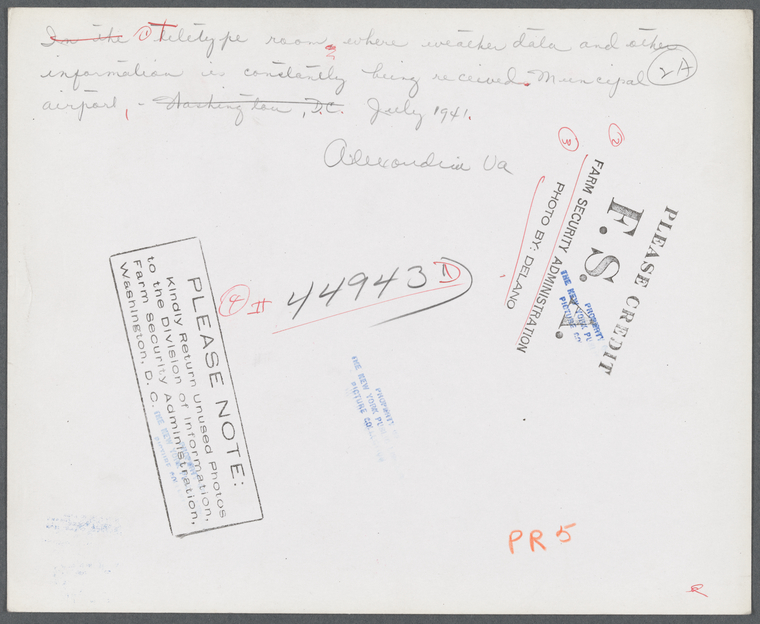 In the ① Teletype room, where weather data and other
information is constantly being received. Municipal
airport, - Washington, D.C. July 1941.
2A
Alexandria Va
②
③
PLEASE CREDIT
F. S. A.
FARM SECURITY ADMINISTRATION
PHOTO BY: DELANO
THE NEW YORK
PICTURE
PROPERTY
④ II 44943 D
PLEASE NOTE:
Kindly Return Unused Photos
to the Division of Information,
Farm Security Administration,
Washington, D. C.
PROPERTY
THE NEW YORK
PICTURE
PR 5